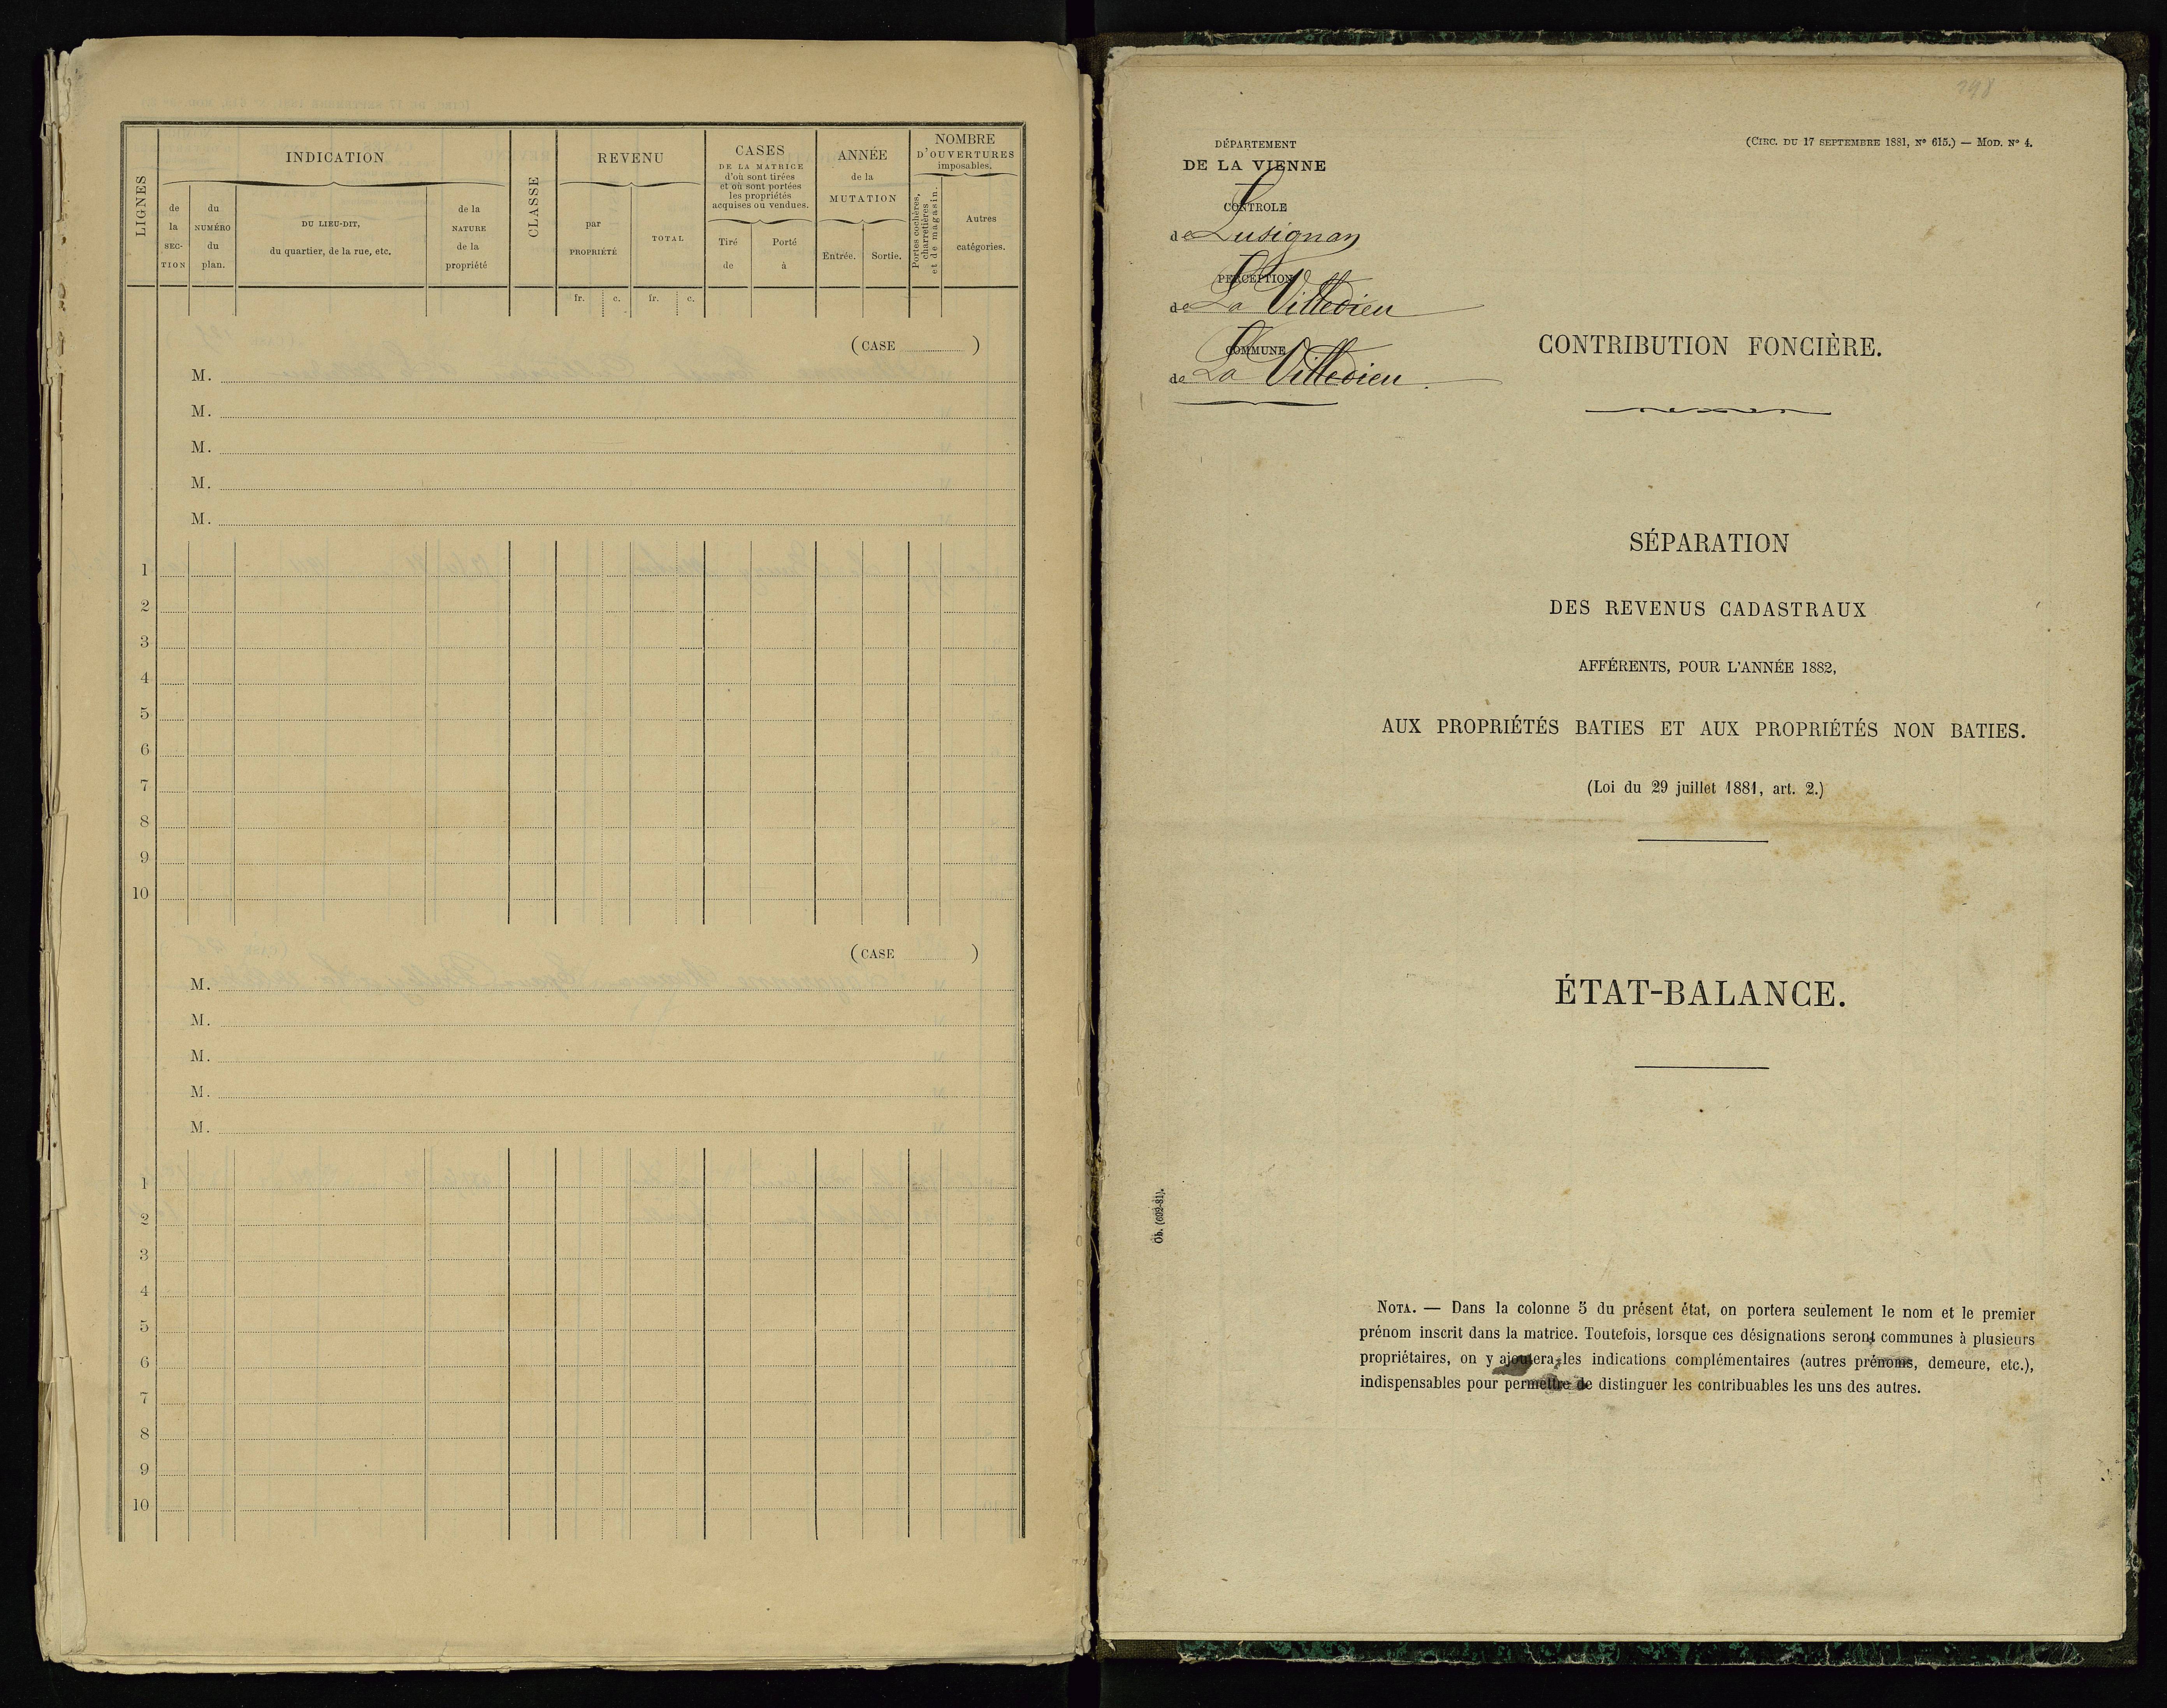 LIGNES
INDICATION
de la SECTION
du NUMÉRO du plan.
DU LIEU-DIT,
du quartier, de la rue, etc.
de la NATURE de la propriété
CLASSE
REVENU
par PROPRIÉTÉ
TOTAL
CASES
DE LA MATRICE
d'où sont tirées
et où sont portées
les propriétés
acquises ou vendues.
Tiré de
Porté à
ANNÉE
de la
MUTATION
Entrée.
Sortie.
NOMBRE
D'OUVERTURES
imposables.
Portes cochères,
charretières
et de magasin.
Autres
catégories.
fr. c. fr. c.
(CASE )
M.
M.
M.
M.
M.
1
2
3
4
5
6
7
8
9
10
(CASE )
M.
M.
M.
M.
M.
1
2
3
4
5
6
7
8
9
10
248
DÉPARTEMENT
DE LA VIENNE
(CIRC. DU 17 SEPTEMBRE 1881, N° 615.) — MOD. N° 4.
CONTROLE
de Lusignan
PERCEPTION
de La Villedieu
COMMUNE
de La Villedieu.
CONTRIBUTION FONCIÈRE.
SÉPARATION
DES REVENUS CADASTRAUX
AFFÉRENTS, POUR L'ANNÉE 1882,
AUX PROPRIÉTÉS BATIES ET AUX PROPRIÉTÉS NON BATIES.
(Loi du 29 juillet 1881, art. 2.)
ÉTAT-BALANCE.
Ob. (692-81).
NOTA. — Dans la colonne 5 du présent état, on portera seulement le nom et le premier
prénom inscrit dans la matrice. Toutefois, lorsque ces désignations seront communes à plusieurs
propriétaires, on y ajoutera les indications complémentaires (autres prénoms, demeure, etc.),
indispensables pour permettre de distinguer les contribuables les uns des autres.